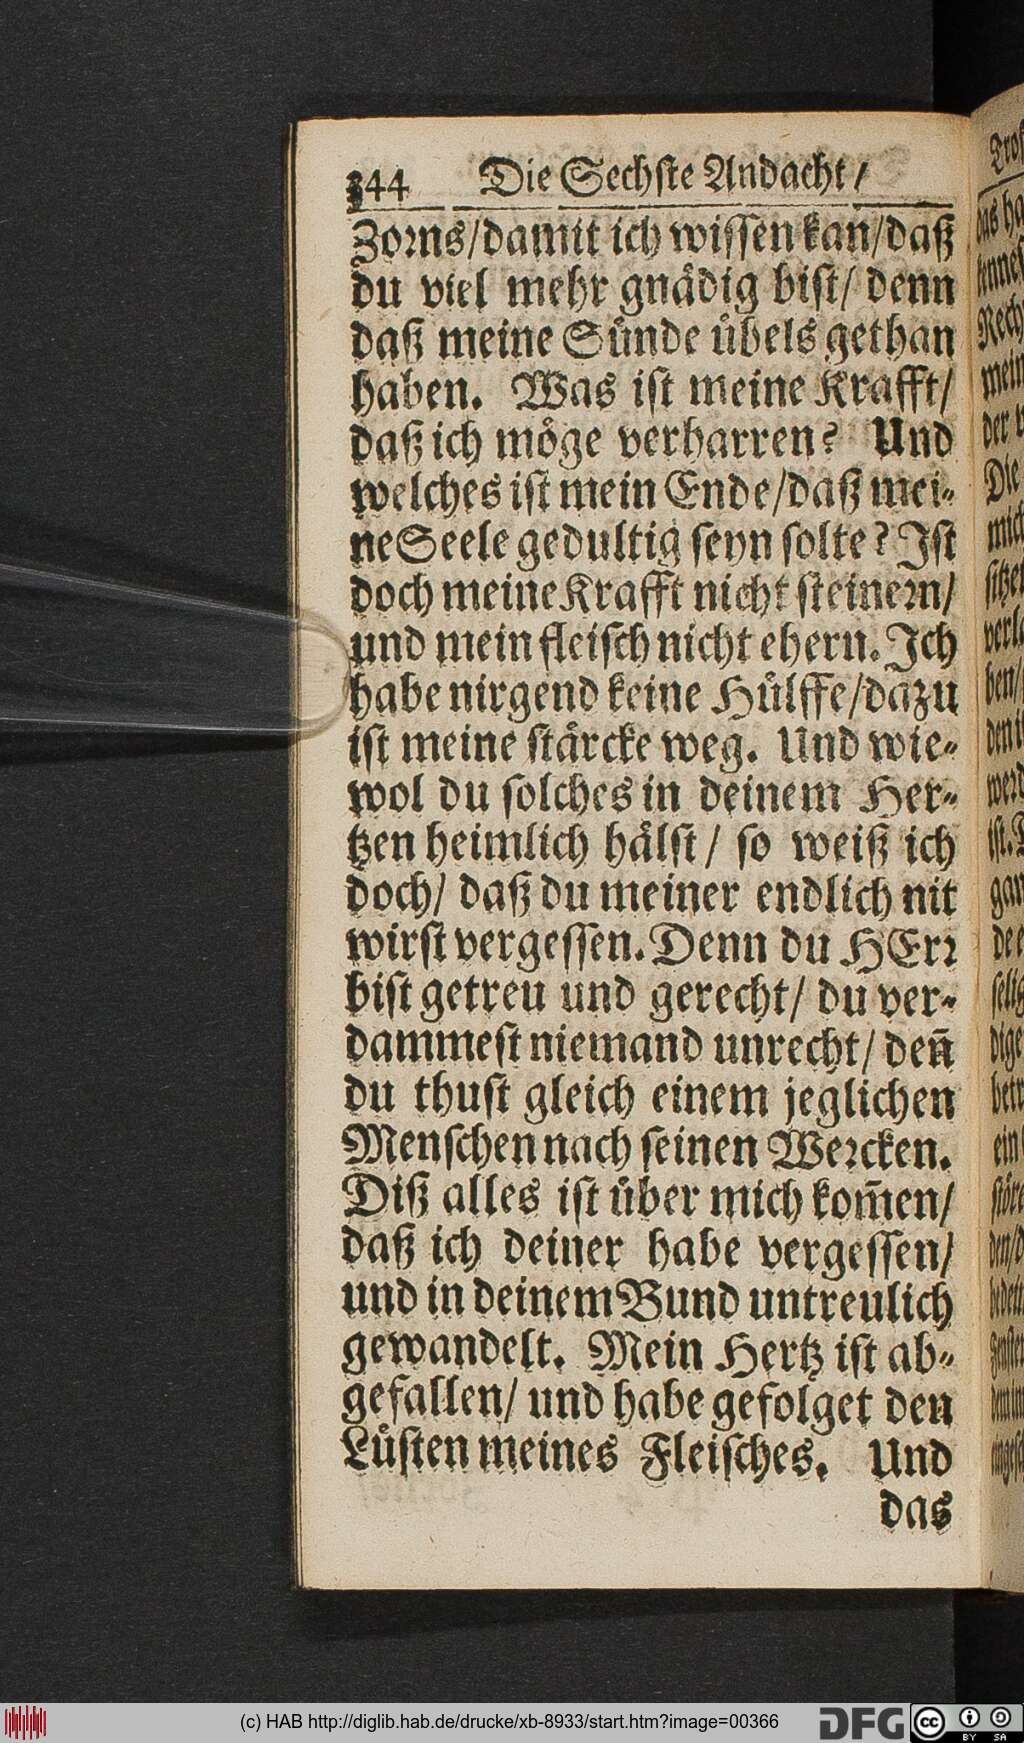 344 Die Sechste Andacht /
Zorns/damit ich wissen kan/daß
du viel mehr gnådig bist/ denn
daß meine Sünde übels gethan
haben. Was ist meine Krafft/
daß ich möge verharren? Und
welches ist mein Ende/daß mei-
ne Seele gedultig seyn solte? Ist
doch meine Krafft nicht steinern/
und mein fleisch nicht ehern. Ich
habe nirgend keine Hülffe/dazu
ist meine stårcke weg. Und wie-
wol du solches in deinem Her-
tzen heimlich hålst / so weiß ich
doch/ daß du meiner endlich nit
wirst vergessen. Denn du HErr
bist getreu und gerecht/ du ver-
dammest niemand unrecht/ deñ
du thust gleich einem jeglichen
Menschen nach seinen Wercken.
Diß alles ist über mich kom̃en/
daß ich deiner habe vergessen/
und in deinem Bund untreulich
gewandelt. Mein Hertz ist ab-
gefallen/ und habe gefolget den
Lüsten meines Fleisches. Und
das
(c) HAB http://diglib.hab.de/drucke/xb-8933/start.htm?image=00366
DFG
cc BY SA